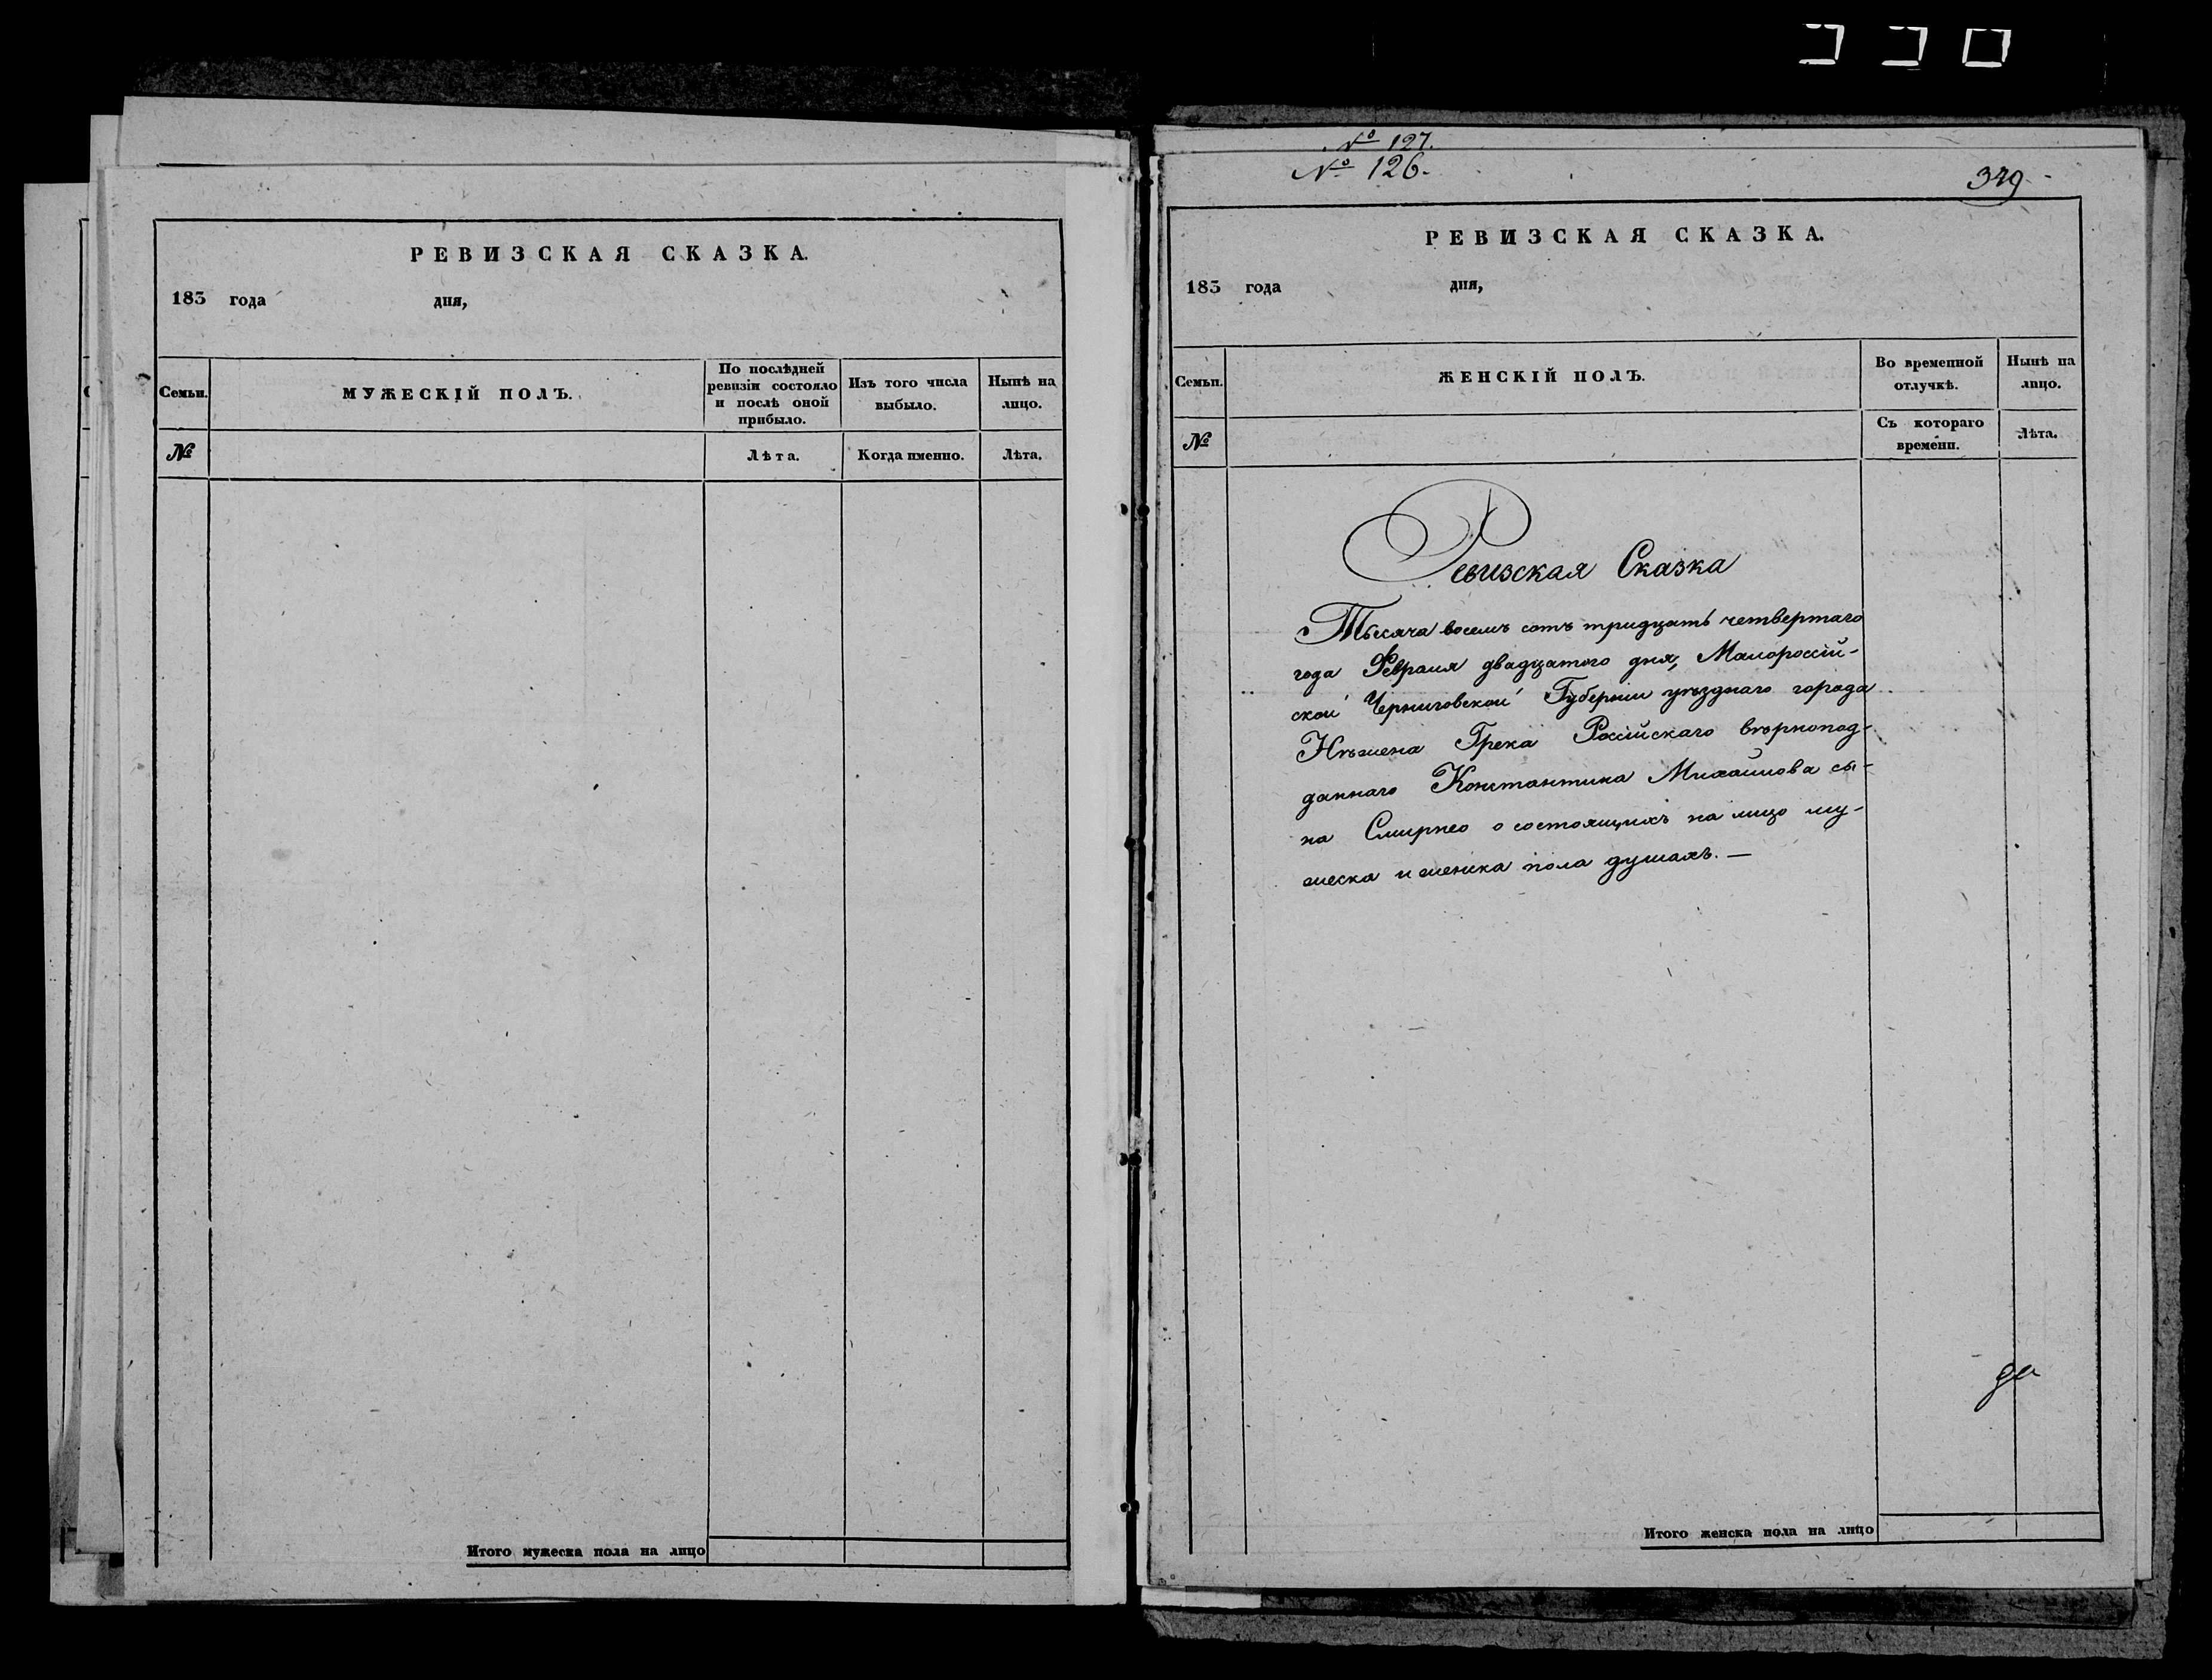 РЕВИЗСКАЯ СКАЗКА.
183 года дня,
Семьи. МУЖЕСКІЙ ПОЛЪ. По послѣдней ревизіи состояло и послѣ оной прибыло. Изъ того числа выбыло. Нынѣ на лицо.
№ Лѣта. Когда именно. Лѣта.
Итого мужеска пола на лицо
№ 127.
№ 126.
349
РЕВИЗСКАЯ СКАЗКА.
183 года дня,
Семьи. ЖЕНСКІЙ ПОЛЪ. Во временной отлучкѣ. Нынѣ на лицо.
№ Съ котораго времени. Лѣта.
Ревизская Сказка
Тысяча восемь сотъ тридцать четвертаго
года Февраля двадцатого дня, Малороссій-
ской Черниговской Губерніи уѣзднаго города
Нѣжена Грека Россійскаго вѣрнопод-
даннаго Константина Михайлова сы-
на Смирнео о состоящихъ на лицо му-
жеска и женска пола душахъ. —
Итого женска пола на лицо